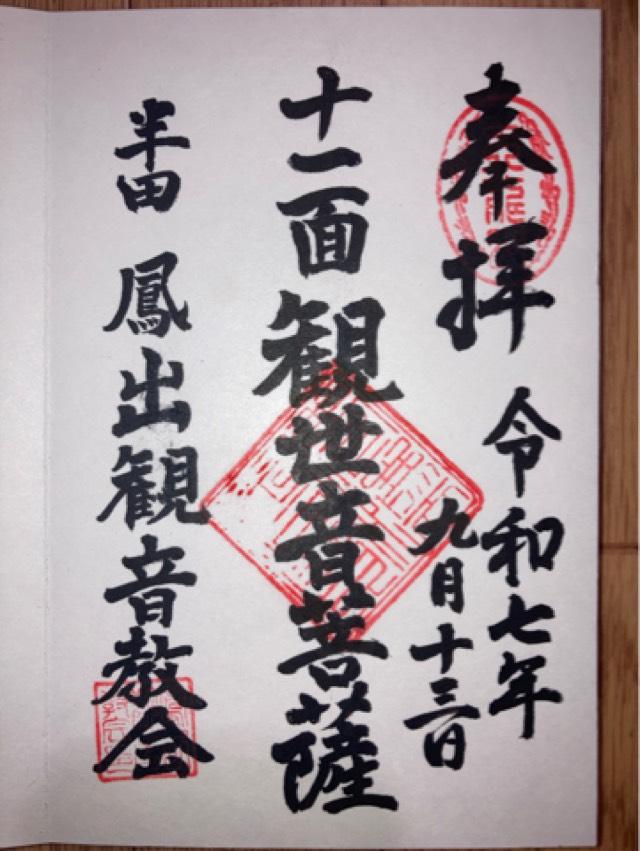 奉拝
令和七年
九月十三日
十一面観世音菩薩
半田 鳳出観音教会